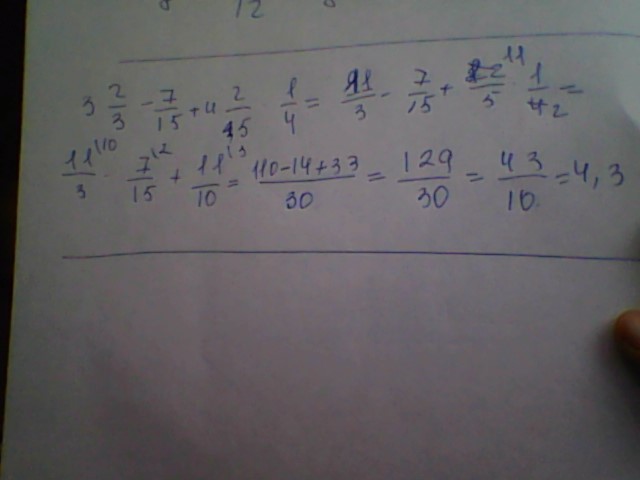 12
3 2/3 - 7/15 + 4 2/5 · 1/4 = 11/3 - 7/15 + 22/5 \11 · 1/4 2 =
11/3 \10 - 7/15 \2 + 11/10 \3 = 110-14+33/30 = 129/30 = 43/10 = 4,3